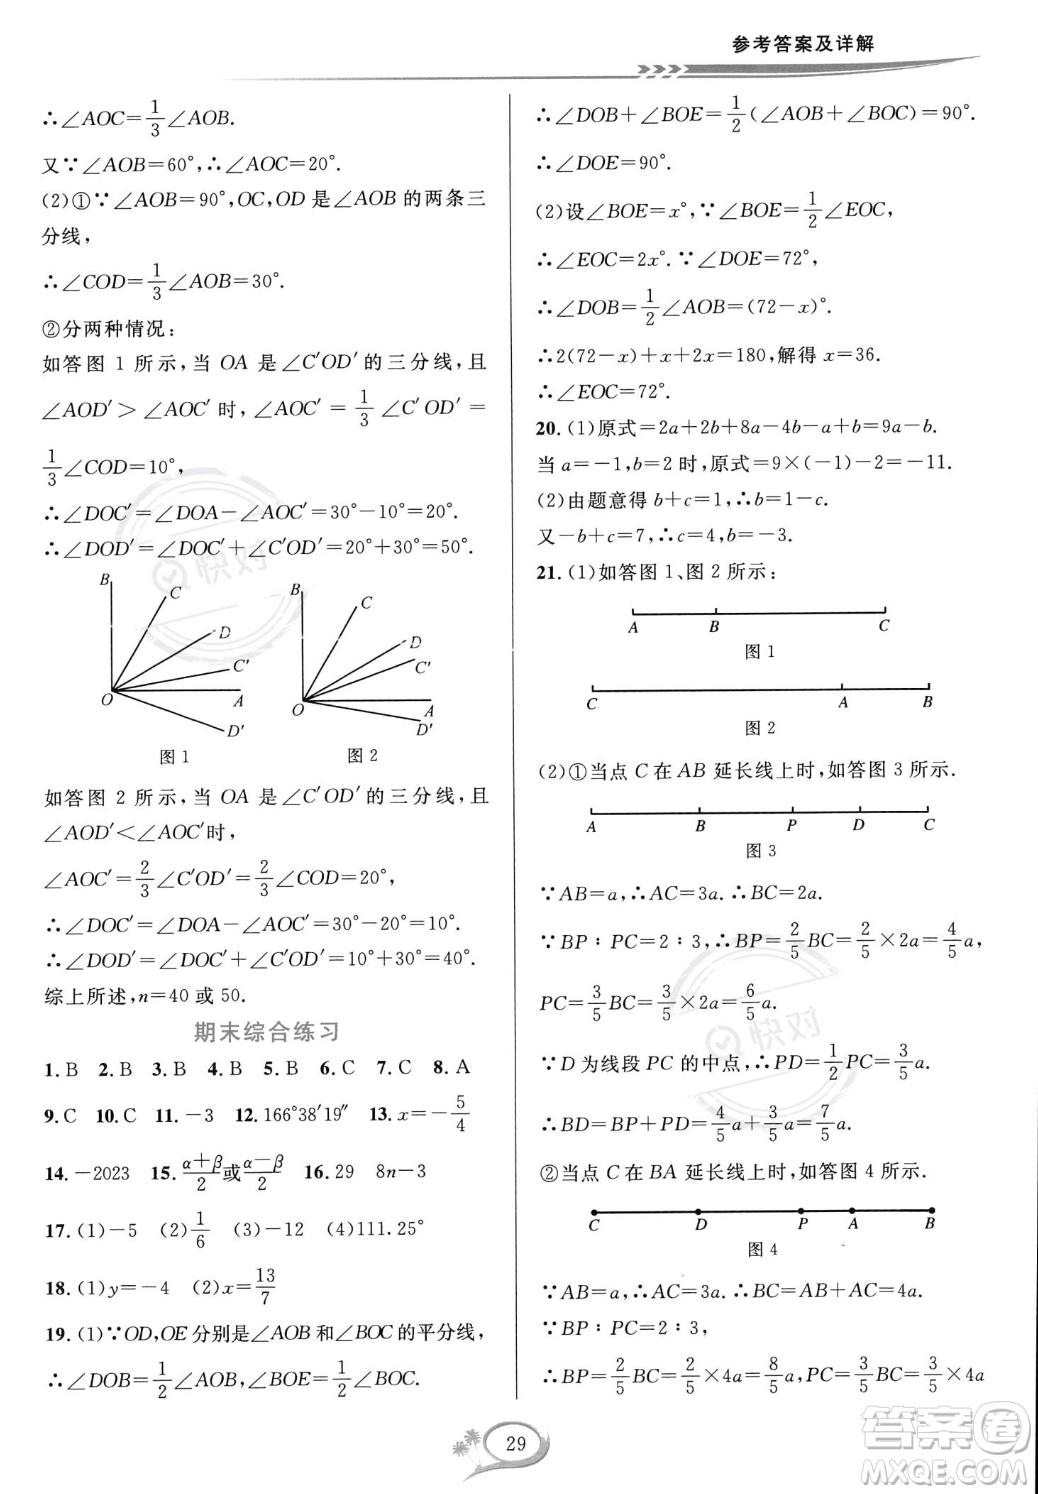 参考答案及详解
∴∠AOC=1/3∠AOB.
又∵∠AOB=60°,∴∠AOC=20°.
(2)①∵∠AOB=90°,OC,OD 是∠AOB 的两条三
分线,
∴∠COD=1/3∠AOB=30°.
②分两种情况:
如答图 1 所示,当 OA 是∠C′OD′的三分线,且
∠AOD′>∠AOC′时,∠AOC′=1/3∠C′OD′=
1/3∠COD=10°,
∴∠DOC′=∠DOA-∠AOC′=30°-10°=20°.
∴∠DOD′=∠DOC′+∠C′OD′=20°+30°=50°.
B C D C′ O A D′
图 1
B C D C′ O A D′
图 2
如答图 2 所示,当 OA 是∠C′OD′的三分线,且
∠AOD′<∠AOC′时,
∠AOC′=2/3∠C′OD′=2/3∠COD=20°,
∴∠DOC′=∠DOA-∠AOC′=30°-20°=10°.
∴∠DOD′=∠DOC′+∠C′OD′=10°+30°=40°.
综上所述,n=40 或 50.
期末综合练习
1.B 2.B 3.B 4.B 5.B 6.C 7.C 8.A
9.C 10.C 11.-3 12.166°38′19″ 13.x=-5/4
14.-2023 15.α+β/2或α-β/2 16.29 8n-3
17.(1)-5 (2)1/6 (3)-12 (4)111.25°
18.(1)y=-4 (2)x=13/7
19.(1)∵OD,OE 分别是∠AOB 和∠BOC 的平分线,
∴∠DOB=1/2∠AOB,∠BOE=1/2∠BOC.
∴∠DOB+∠BOE=1/2(∠AOB+∠BOC)=90°.
∴∠DOE=90°.
(2)设∠BOE=x°,∵∠BOE=1/2∠EOC,
∴∠EOC=2x°.∵∠DOE=72°,
∴∠DOB=1/2∠AOB=(72-x)°.
∴2(72-x)+x+2x=180,解得 x=36.
∴∠EOC=72°.
20.(1)原式=2a+2b+8a-4b-a+b=9a-b.
当 a=-1,b=2 时,原式=9×(-1)-2=-11.
(2)由题意得 b+c=1,∴b=1-c.
又-b+c=7,∴b=-3.
21.(1)如答图 1、图 2 所示:
A B C
图 1
C A B
图 2
(2)①当点 C 在 AB 延长线上时,如答图 3 所示.
A B P D C
图 3
∵AB=a,∴AC=3a.∴BC=2a.
∵BP∶PC=2∶3,∴BP=2/5BC=2/5×2a=4/5a,
PC=3/5BC=3/5×2a=6/5a.
∵D 为线段 PC 的中点,∴PD=1/2PC=3/5a.
∴BD=BP+PD=4/5a+3/5a=7/5a.
②当点 C 在 BA 延长线上时,如答图 4 所示.
C D P A B
图 4
∵AB=a,∴AC=3a.∴BC=AB+AC=4a.
∵BP∶PC=2∶3,
∴BP=2/5BC=2/5×4a=8/5a,PC=3/5BC=3/5×4a
29
快对
快对
答案卷
MXQE.COM